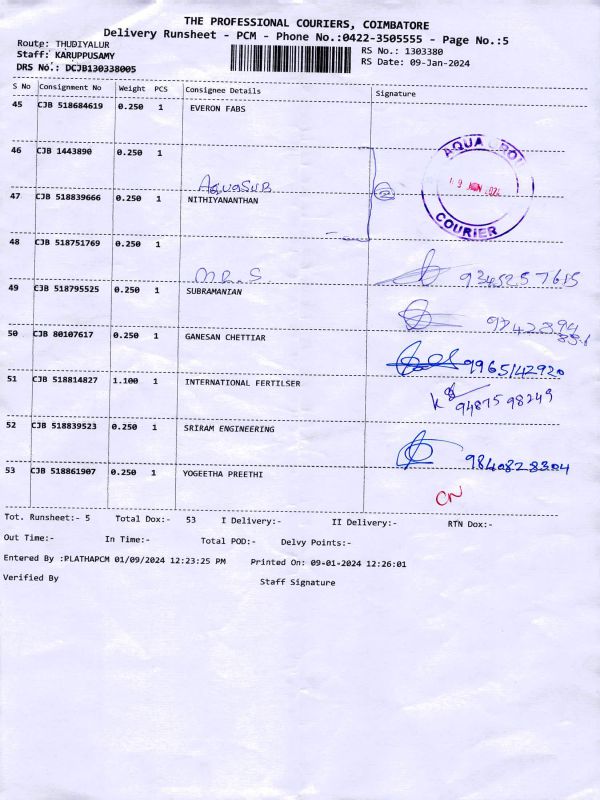 THE PROFESSIONAL COURIERS, COIMBATORE
Delivery Runsheet - PCM - Phone No.:0422-3505555 - Page No.:5
Route: THUDIYALUR
RS No.: 1303380
Staff: KARUPPUSAMY
RS Date: 09-Jan-2024
DRS No.: DCJB130338005
S No Consignment No Weight PCS Consignee Details Signature
45 CJB 518684619 0.250 1 EVERON FABS
46 CJB 1443890 0.250 1
AquaSUB
AQUA
COURIER
47 CJB 518839666 0.250 1 NITHIYANANTHAN
48 CJB 518751769 0.250 1
M.R.S
9345257615
49 CJB 518795525 0.250 1 SUBRAMANIAN
50 CJB 80107617 0.250 1 GANESAN CHETTIAR
9965142920
51 CJB 518814827 1.100 1 INTERNATIONAL FERTILSER
9487598249
52 CJB 518839523 0.250 1 SRIRAM ENGINEERING
9840828304
53 CJB 518861907 0.250 1 YOGEETHA PREETHI
CN
Tot. Runsheet:- 5 Total Dox:- 53 I Delivery:- II Delivery:- RTN Dox:-
Out Time:- In Time:- Total POD:- Delvy Points:-
Entered By :PLATHAPCM 01/09/2024 12:23:25 PM Printed On: 09-01-2024 12:26:01
Verified By Staff Signature